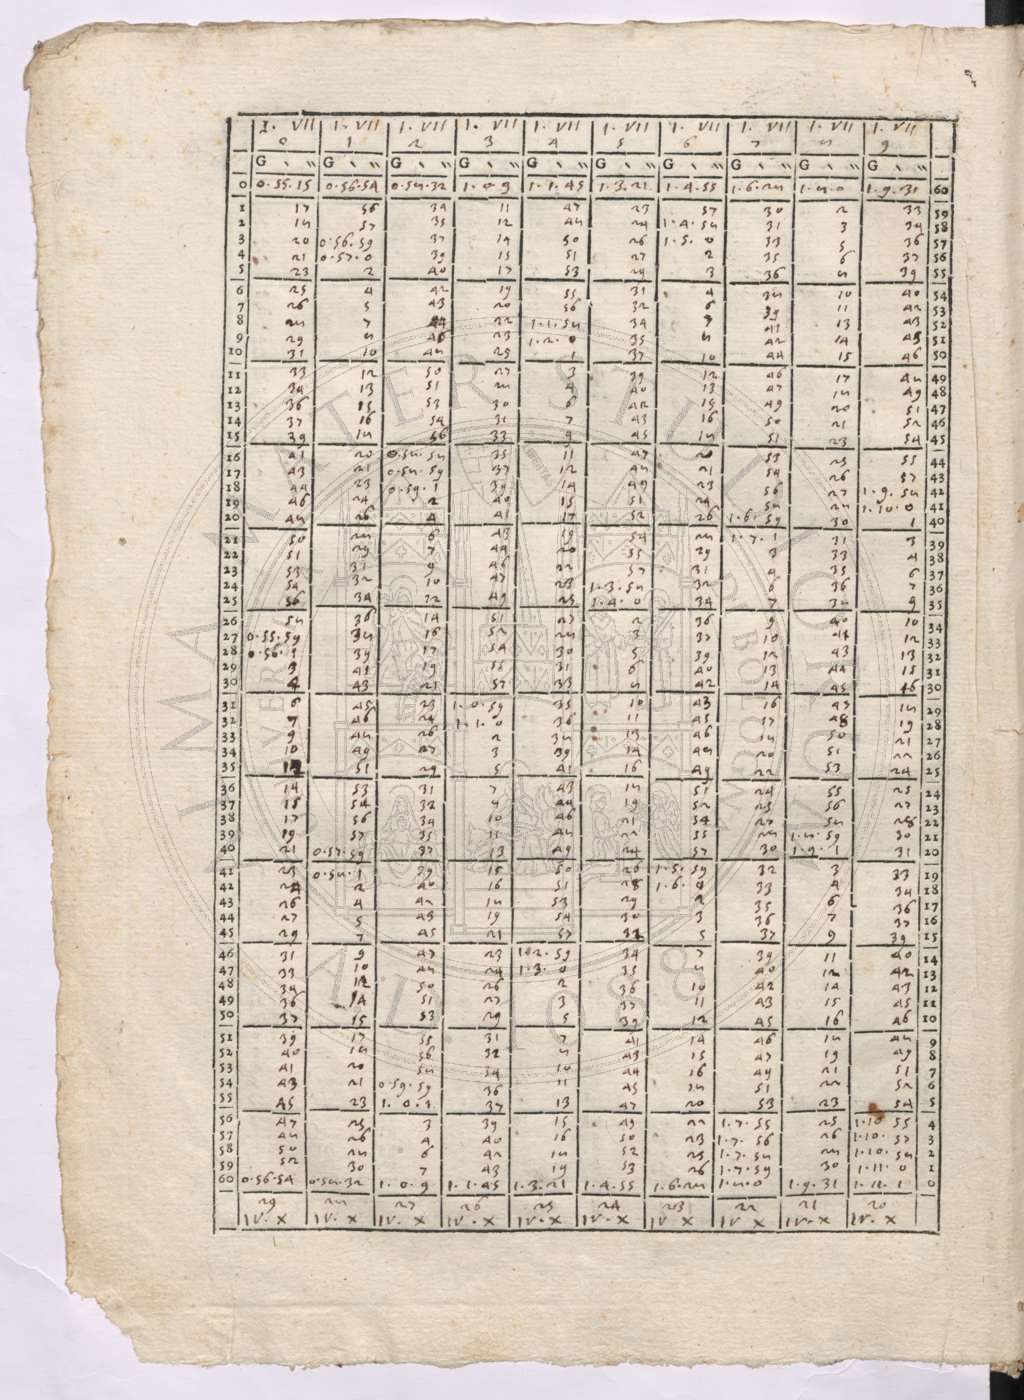 I. VII I. VII I. VII I. VII I. VII I. VII I. VII I. VII I. VII I. VII
0 1 2 3 4 5 6 7 8 9
G ‵ ‶ G ‵ ‶ G ‵ ‶ G ‵ ‶ G ‵ ‶ G ‵ ‶ G ‵ ‶ G ‵ ‶ G ‵ ‶ G ‵ ‶
0 0·55·15 0·56·54 0·58·32 1·0·9 1·1·45 1·3·21 1·4·55 1·6·28 1·8·0 1·9·31 60
1 17 56 34 11 47 23 57 30 2 33 59
2 18 57 35 12 48 24 1·4·58 31 3 34 58
3 20 0·56·59 37 14 50 26 1·5·0 33 5 36 57
4 21 0·57·0 39 15 51 27 2 35 6 37 56
5 23 2 40 17 53 29 3 36 8 39 55
6 25 4 42 19 55 31 4 38 10 40 54
7 26 5 43 20 56 32 6 39 11 42 53
8 28 7 44 22 1·1·58 34 7 41 13 43 52
9 29 8 46 23 1·2·0 35 8 42 14 45 51
10 31 10 48 25 1 37 10 44 15 46 50
11 33 12 50 27 3 39 12 46 17 48 49
12 34 13 51 28 4 40 13 47 18 49 48
13 36 15 53 30 6 42 15 49 20 51 47
14 37 16 54 31 7 43 16 50 21 52 46
15 39 18 56 33 9 45 18 51 23 54 45
16 41 20 0·58·58 35 11 47 20 53 25 55 44
17 43 21 0·58·59 37 12 48 21 54 26 57 43
18 44 23 0·59·1 39 14 49 23 56 27 1·9·58 42
19 46 24 2 40 15 51 24 58 28 1·10·0 41
20 48 26 4 41 17 52 26 1·6·59 30 1 40
21 50 28 6 43 19 54 28 1·7·1 31 3 39
22 51 29 7 44 20 55 29 3 33 4 38
23 53 31 9 46 22 57 31 4 35 6 37
24 54 32 10 47 23 1·3·58 32 6 36 7 36
25 56 34 12 49 25 1·4·0 34 7 38 9 35
26 58 36 14 51 27 2 36 9 40 10 34
27 0·55·59 38 16 52 28 3 37 10 41 12 33
28 0·56·1 39 17 54 30 5 39 12 43 13 32
29 3 41 19 55 31 6 40 13 44 15 31
30 4 43 21 57 33 8 42 14 45 16 30
31 6 45 23 1·0·59 35 10 43 16 47 18 29
32 7 46 24 1·1·0 36 11 45 17 48 19 28
33 9 48 26 2 38 13 46 18 50 21 27
34 10 49 27 3 39 14 48 20 51 22 26
35 12 51 29 5 41 16 49 22 53 24 25
36 14 53 31 7 43 18 51 24 55 25 24
37 15 54 32 8 44 19 52 25 56 27 23
38 17 56 34 10 46 21 54 27 58 28 22
39 19 57 35 11 48 22 55 28 1·8·59 30 21
40 21 0·57·59 37 13 49 24 57 30 1·9·1 31 20
41 23 0·58·1 39 15 50 26 1·5·59 32 3 33 19
42 24 2 40 16 51 28 1·6·0 33 4 34 18
43 26 4 42 18 53 29 2 35 6 36 17
44 27 5 43 19 54 30 3 36 7 37 16
45 29 7 45 21 57 32 5 37 9 39 15
46 31 9 47 23 1·2·59 34 7 39 11 40 14
47 33 10 48 24 1·3·0 35 8 40 12 42 13
48 34 12 50 26 2 36 10 42 14 43 12
49 36 14 51 27 3 37 11 43 15 45 11
50 37 15 53 29 5 39 12 45 16 46 10
51 39 17 55 31 7 41 14 46 18 48 9
52 40 18 56 32 8 43 15 47 19 49 8
53 41 20 58 34 10 44 16 49 21 51 7
54 43 21 0·59·59 36 11 45 18 51 22 52 6
55 45 23 1·0·1 37 13 47 20 53 23 54 5
56 47 25 3 39 15 49 22 1·7·55 25 1·10·55 4
57 48 26 4 40 16 50 23 1·7·56 26 1·10·57 3
58 50 28 6 42 18 52 25 1·7·58 28 1·10·58 2
59 52 30 7 43 19 53 26 1·7·59 30 1·11·0 1
60 0·56·54 0·58·32 1·0·9 1·1·45 1·3·21 1·4·55 1·6·28 1·8·0 1·9·31 1·11·1 0
29 28 27 26 25 24 23 22 21 20
IV. X IV. X IV. X IV. X IV. X IV. X IV X IV X IV. X IV. X
ALMA MATER STUDIORUM
A.D. 1088